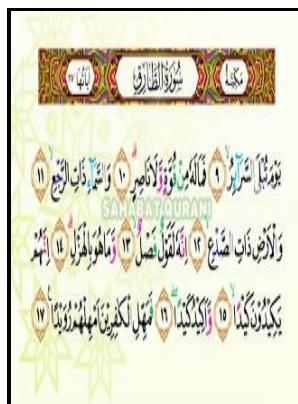 مكية سورة الطارق آياتها ١٧
يَوْمَ تُبْلَى السَّرَآئِرُۙ ٩ فَمَا لَهٗ مِنْ قُوَّةٍ وَّلَا نَاصِرٍۗ ١٠ وَالسَّمَآءِ ذَاتِ الرَّجْعِۙ ١١
SAHABAT QURANI
وَالْاَرْضِ ذَاتِ الصَّدْعِۙ ١٢ اِنَّهٗ لَقَوْلٌ فَصْلٌۙ ١٣ وَّمَا هُوَ بِالْهَزْلِۗ ١٤ اِنَّهُمْ
يَكِيْدُوْنَ كَيْدًاۙ ١٥ وَّاَكِيْدُ كَيْدًاۖ ١٦ فَمَهِّلِ الْكٰفِرِيْنَ اَمْهِلْهُمْ رُوَيْدًا ١٧